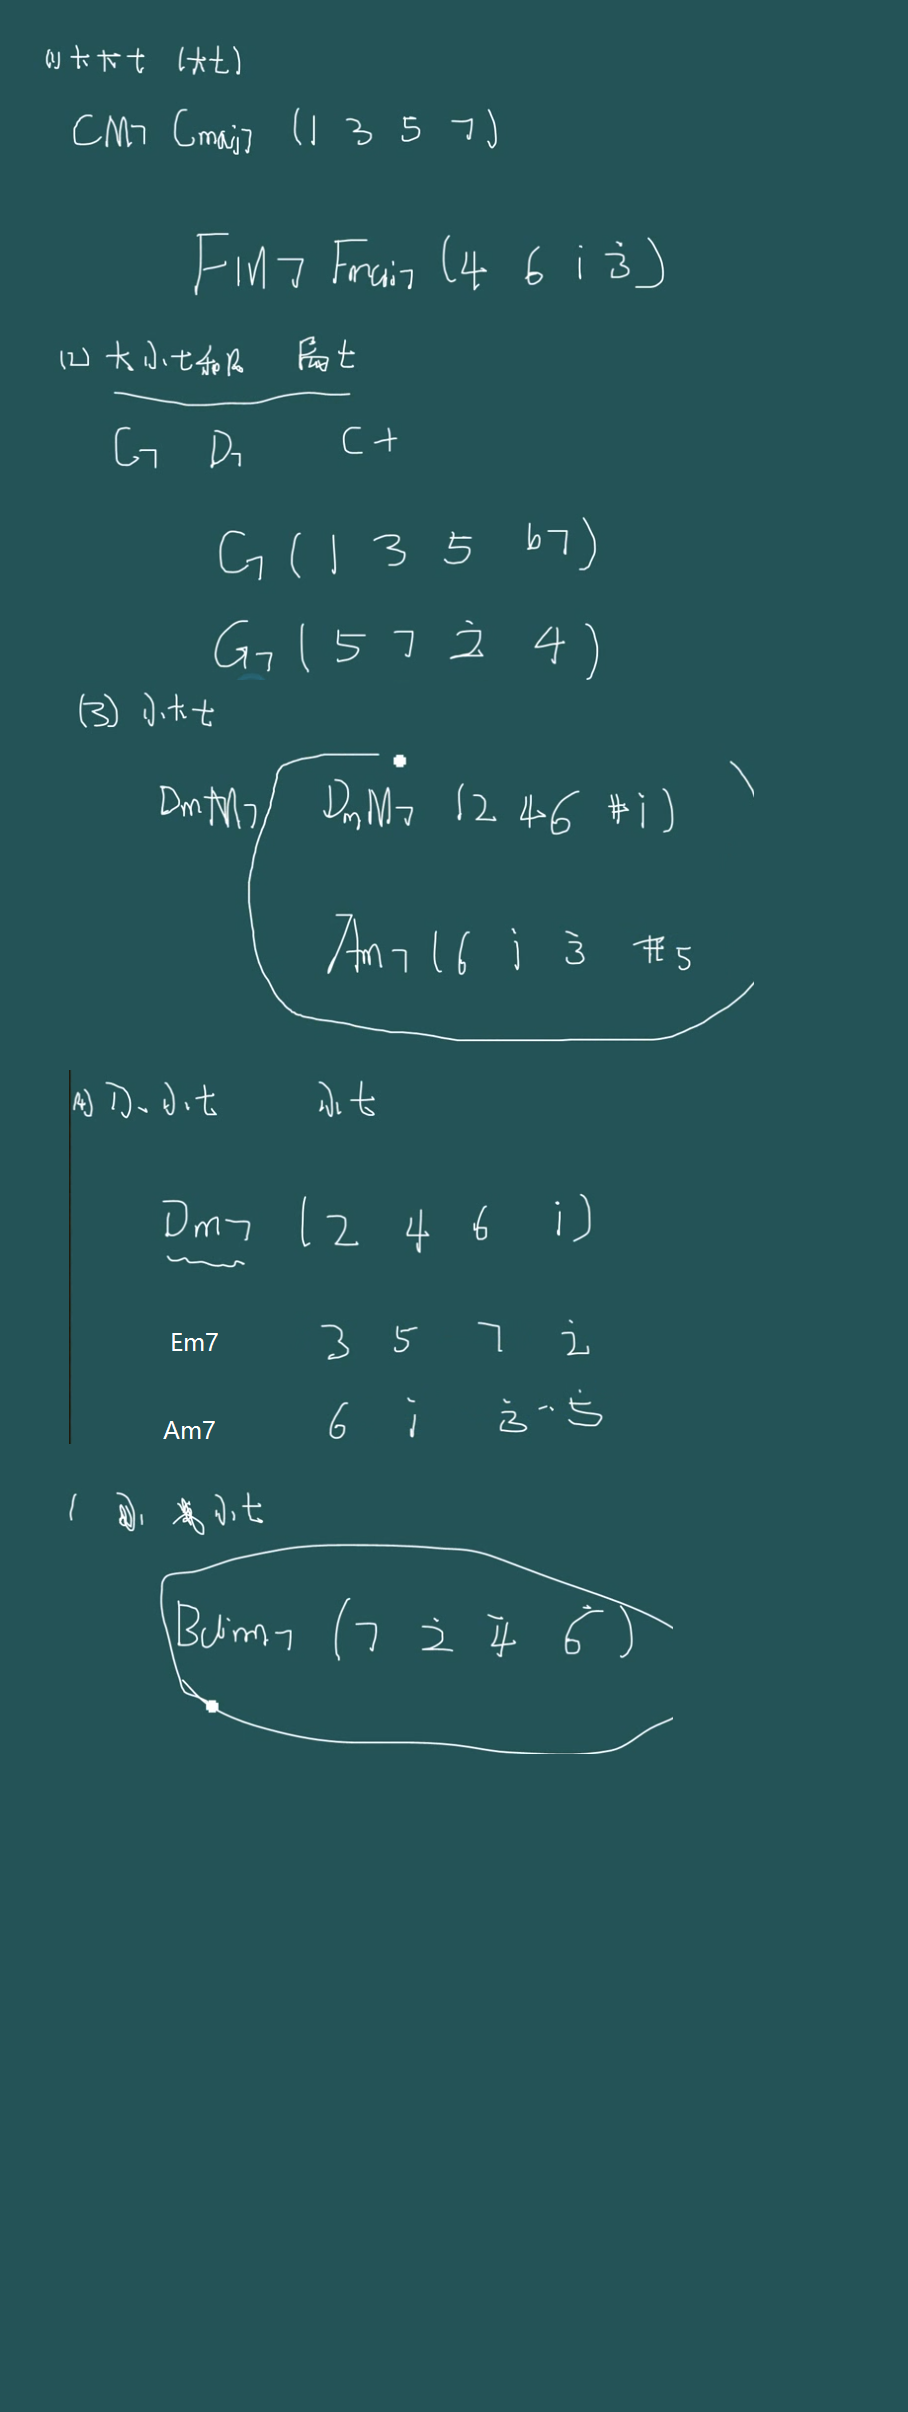 (1) 大大七 (大七)
CM7 Cmaj7 (1 3 5 7)
FM7 Fmaj7 (4 6 i 3̇)
(2) 大小七和弦 属七
G7 D7 C+
C7 (1 3 5 b7)
G7 (5 7 2̇ 4)
(3) 小大七
DmM7 DmM7 (2 4 6 #i)
Am7 (6 i 3̇ #5
(4) 小小七 小七
Dm7 (2 4 6 i)
Em7 3 5 7 2̇
Am7 6 i 3̇ 5̇
( 小七
Bdim7 (7 2̇ 4̇ 6̇)